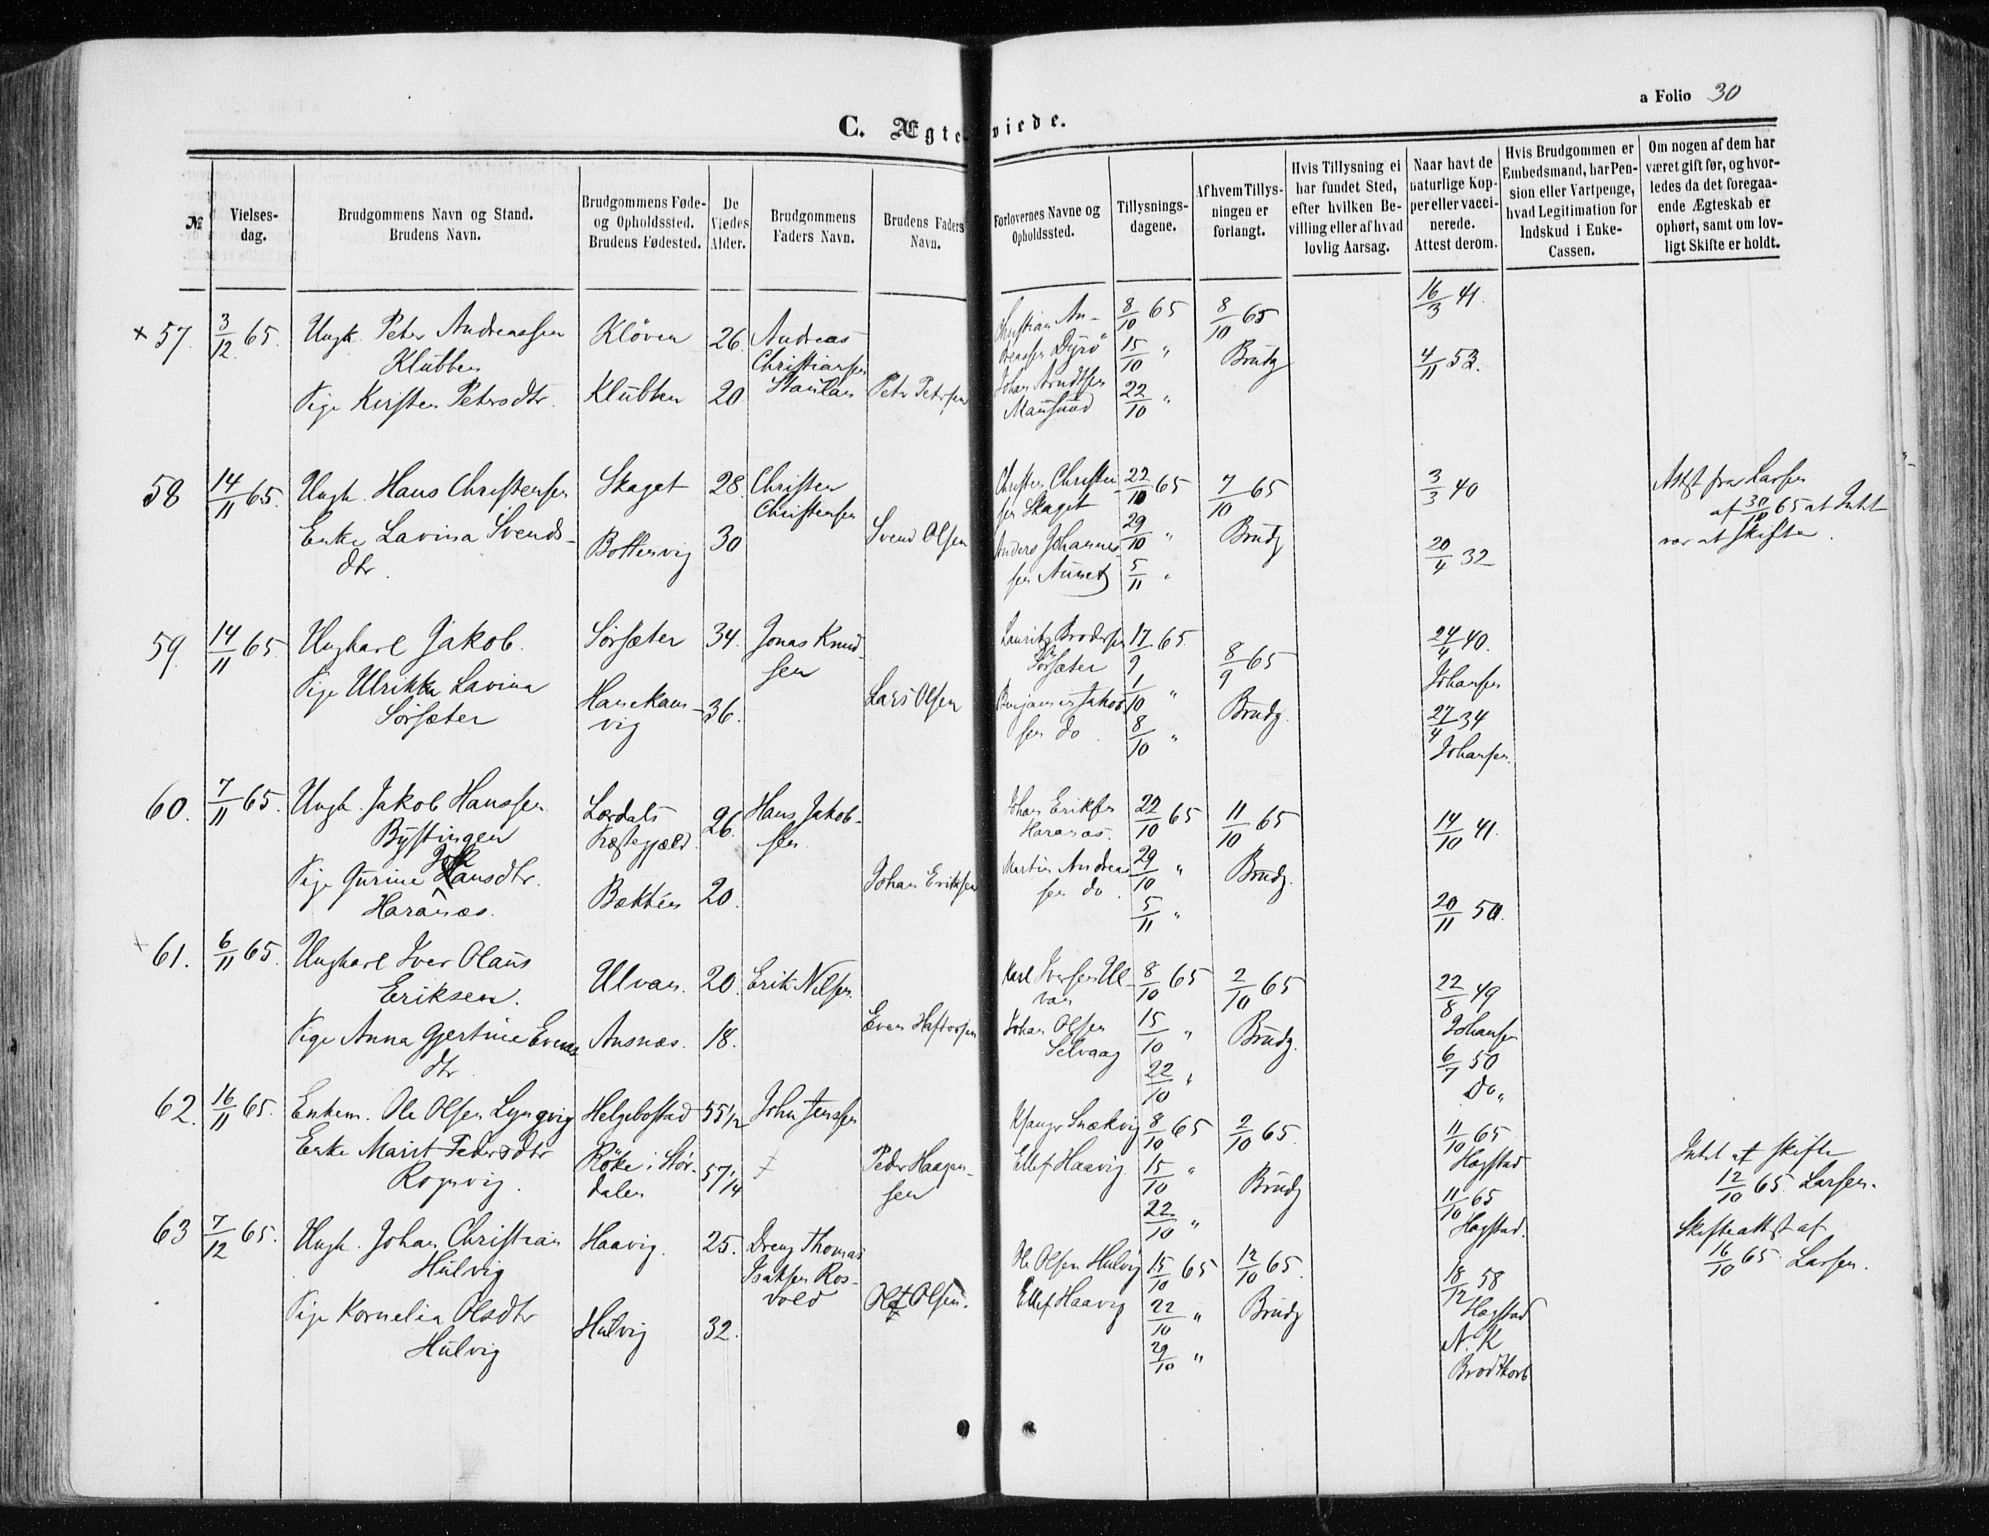 a Folio 30
C. Ægteviede.
№
Vielses-
dag.
Brudgommens Navn og Stand.
Brudens Navn.
Brudgommens Føde-
og Opholdssted.
Brudens Fødested.
De
Viedes
Alder.
Brudgommens
Faders Navn.
Brudens Faders
Navn.
Forlovernes Navne og
Opholdssted.
Tillysnings-
dagene.
Af hvem Tillys-
ningen er
forlangt.
Hvis Tillysning ei
har fundet Sted,
efter hvilken Be-
villing eller af hvad
lovlig Aarsag.
Naar havt de
naturlige Kop-
per eller vacci-
nerede.
Attest derom.
Hvis Brudgommen er
Embedsmand, har Pen-
sion eller Vartpenge,
hvad Legitimation for
Indskud i Enke-
Cassen.
Om nogen af dem har
været gift før, og hvor-
ledes da det foregaa-
ende Ægteskab er
ophørt, samt om lov-
ligt Skifte er holdt.
+ 57. 3/12 65. Ungk. Peter Andreassen Kløven 26. Andreas
Klubben Christiansen
Pige Kirsten Petersdtr. Klubben 20 Peter Petersen
Christian An-
dreassen Dyrø
Johan Arndtsen
Mausund
8/10 65
15/10 "
22/10 "
8/10 65
Brudg
16/3 41.
4/11 53.
58 14/11 65. Ungk. Hans Christensen Skaget 28. Christen
Christensen
Enke Lavina Svends-
dtr. Bottenvig 30 Svend Olsen
Christen Christen-
sen Skaget
Anders Johannes-
sen Aunet
22/10 65
29/10 "
5/11 "
7/10 65
Brudg
3/3 40
20/4 32
Attst fra Larsen
af 30/10 65 at Intet
var at skifte.
59. 14/11 65. Ungkarl Jakob. Sørsæter 34. Jonas Knud-
sen
Pige Ulrikka Lavina
Sørsæter 36. Lars Olsen
vig
Laurits Brodersen
Sørsæter
Benjamin Jakob-
sen do.
17/9 65.
1/10 "
8/10 "
8/9 65
Brudg.
24/4 40.
Johansen
27/4 34
Johansen.
60. 7/11 65. Ungk. Jakob Hanssen Lærdals 26. Hans Jakob-
Bystingen Præstegjæld. sen
Pige Gurine Johansdtr.
Haranæs. Bekken 20. Johan Eriksen
Johan Eriksen
Haranæs.
Martin Andreas-
sen do.
22/10 65
29/10 "
5/11 "
11/10 65
Brudg.
14/10 41.
20/11 50.
+ 61. 6/11 65. Ungkarl Iver Olaus
Eriksen. Ulvan. 20. Erik Nilsen.
Pige Anna Gjertine Evens Ansnæs. 18. Even Haftorsen
dtr.
Karl Iversen Ul-
van
Johan Olsen
Selvaag
8/10 65
15/10 "
22/10 "
2/10 65
Brudg.
22/8 49
Johansen
6/7 50
Do "
62. 16/11 65. Enkem. Ole Olsen Lyngvig Helgebostad 55 1/2 John Jenssen
Enke Marit Pedersdtr Röke i Stør- 57 1/4 Peder Haagen-
Rognvig. dalen sen
Snækvig
Ellef Haavig
8/10 65
15/10 "
22/10 "
2/10 65.
Brudg
11/10 65
Hagstad
11/10 65
Hagstad.
Intet at skifte
12/10 65. Larsen.
Skifteattst af
16/10 65. Larsen.
63 7/12 65. Ungk. Johan Christian Haavig. 25. Dreng Thomas
Hulvig Isaksen Ros-
vold
Pige Kornelia Olsdtr Hulvig 32. Ole Olsen.
Hulvig
Ole Olsen Hulvig
Ellef Haavig
15/10 65
22/10 "
29/10 "
12/10 65.
Brudg
18/12 58
Hagstad
N. K
Brodtkorb